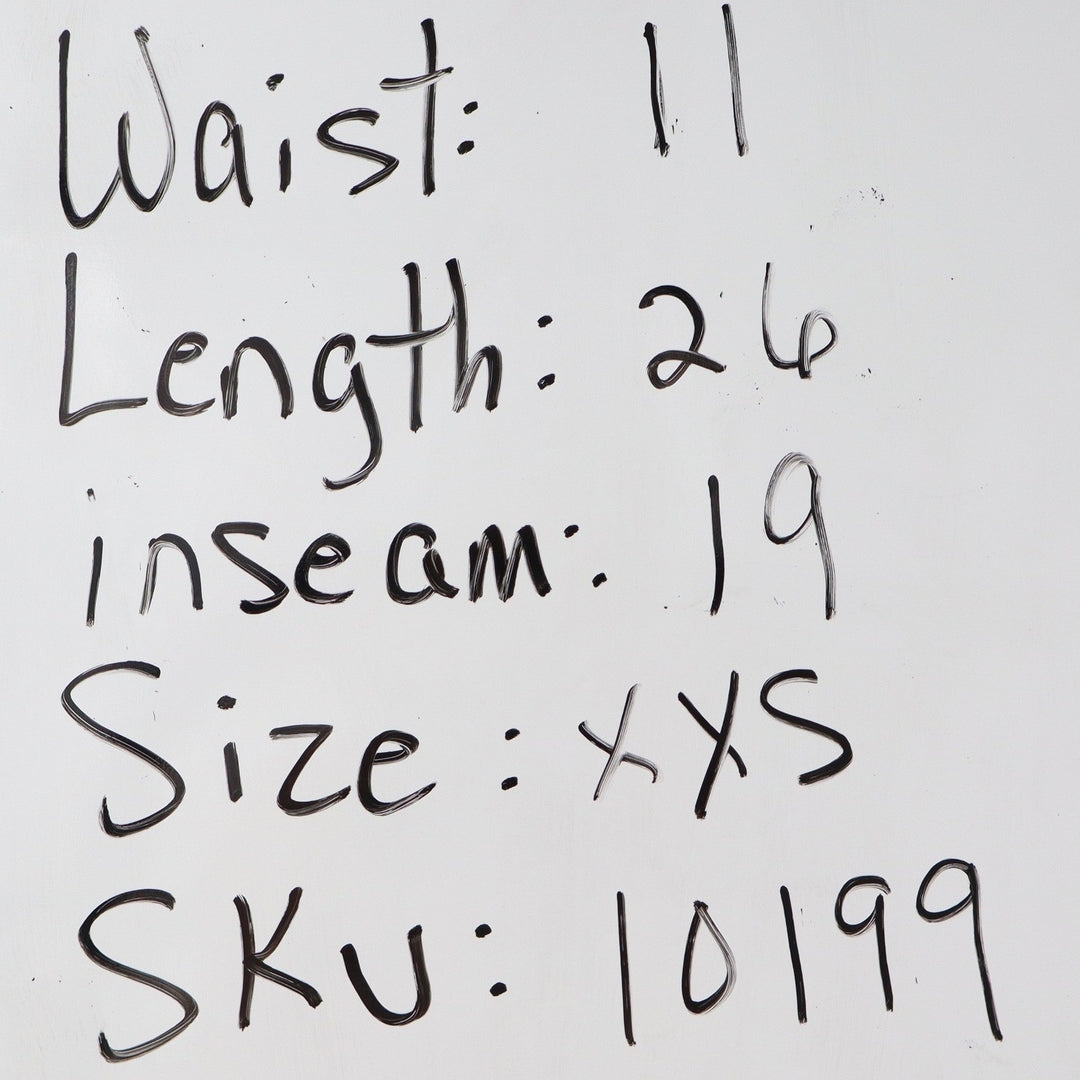 Waist: 11
Length: 26
inseam: 19
Size: XXS
SKU: 10199